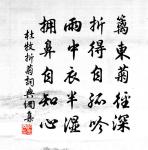 籬東菊徑深
折得自孤吟
雨中衣半濕
擁鼻自知心
杜牧折菊詞典網集